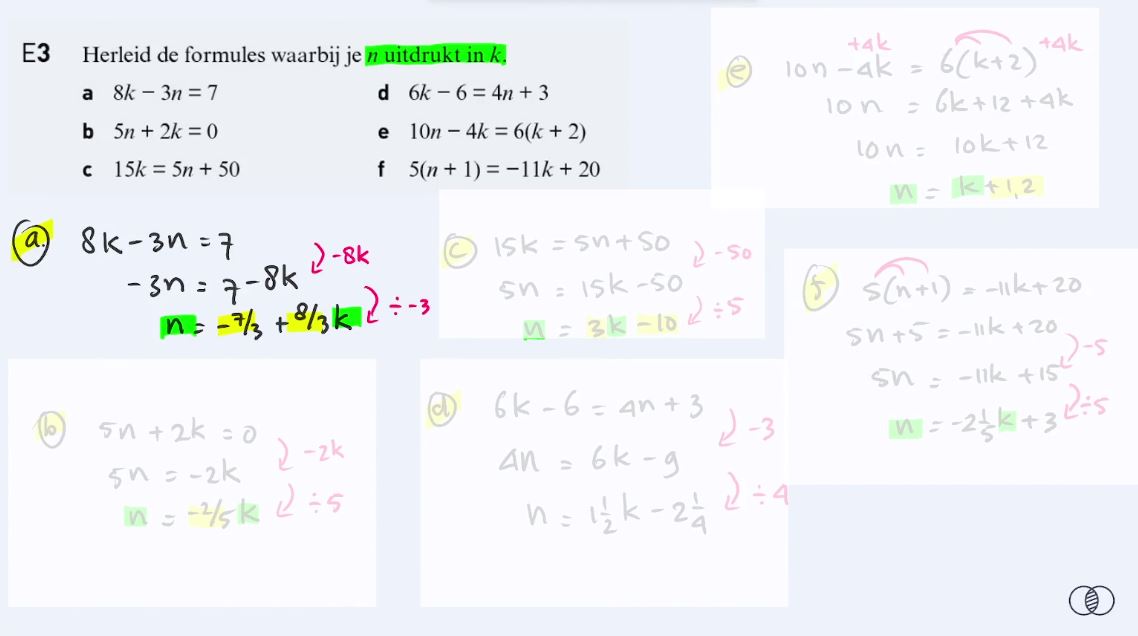 E3 Herleid de formules waarbij je n uitdrukt in k.
a 8k − 3n = 7
b 5n + 2k = 0
c 15k = 5n + 50
d 6k − 6 = 4n + 3
e 10n − 4k = 6(k + 2)
f 5(n + 1) = −11k + 20
a. 8k-3n = 7
-8k
-3n = 7-8k
÷-3
n = -7/3 + 8/3 k
b 5n + 2k = 0
-2k
5n = -2k
÷5
n = -2/5 k
c 15k = 5n + 50
-50
5n = 15k -50
÷5
n = 3k -10
d 6k - 6 = 4n + 3
-3
4n = 6k - 9
÷4
n = 1 1/2 k - 2 1/4
+4k +4k
e 10n -4k = 6(k+2)
10n = 6k +12 +4k
10n = 10k +12
n = k +1,2
f 5(n+1) = -11k+20
5n +5 = -11k +20
-5
5n = -11k +15
÷5
n = -2 1/5 k +3